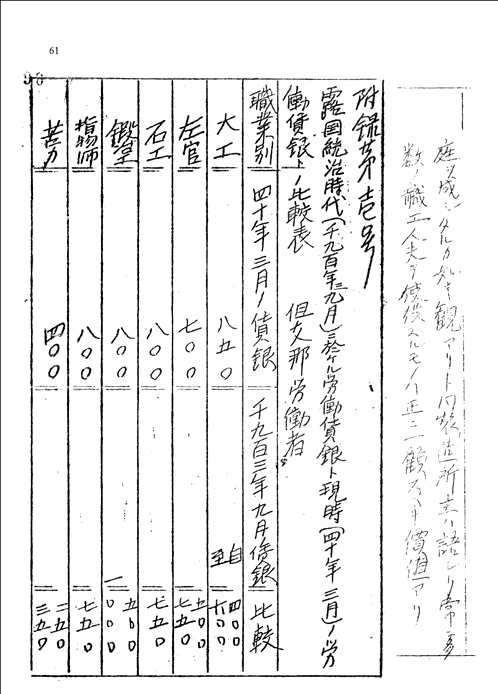 61
庭ヲ成シタルカ如キ観アリト同製造所主ハ語レリ常ニ多
数ノ職工人夫ヲ使役スルモノハ正ニ一顧スヘキ價値アリ
附録第壱号
露国統治時代(千九百三年九月)ニ於ケル労働賃銀ト現時(四十年三月)ノ労
働賃銀トノ比較表 但支那労働者
職業別 四十年三月ノ賃銀 千九百三年九月賃銀 比較
大工 八五〇 自四〇〇 至六〇〇
左官 七〇〇 五〇〇 七五〇
石工 八〇〇 七五〇
鍛工 八〇〇 五〇〇 一〇〇〇
指物師 八〇〇 七五〇
苦力 四〇〇 二五〇 三五〇